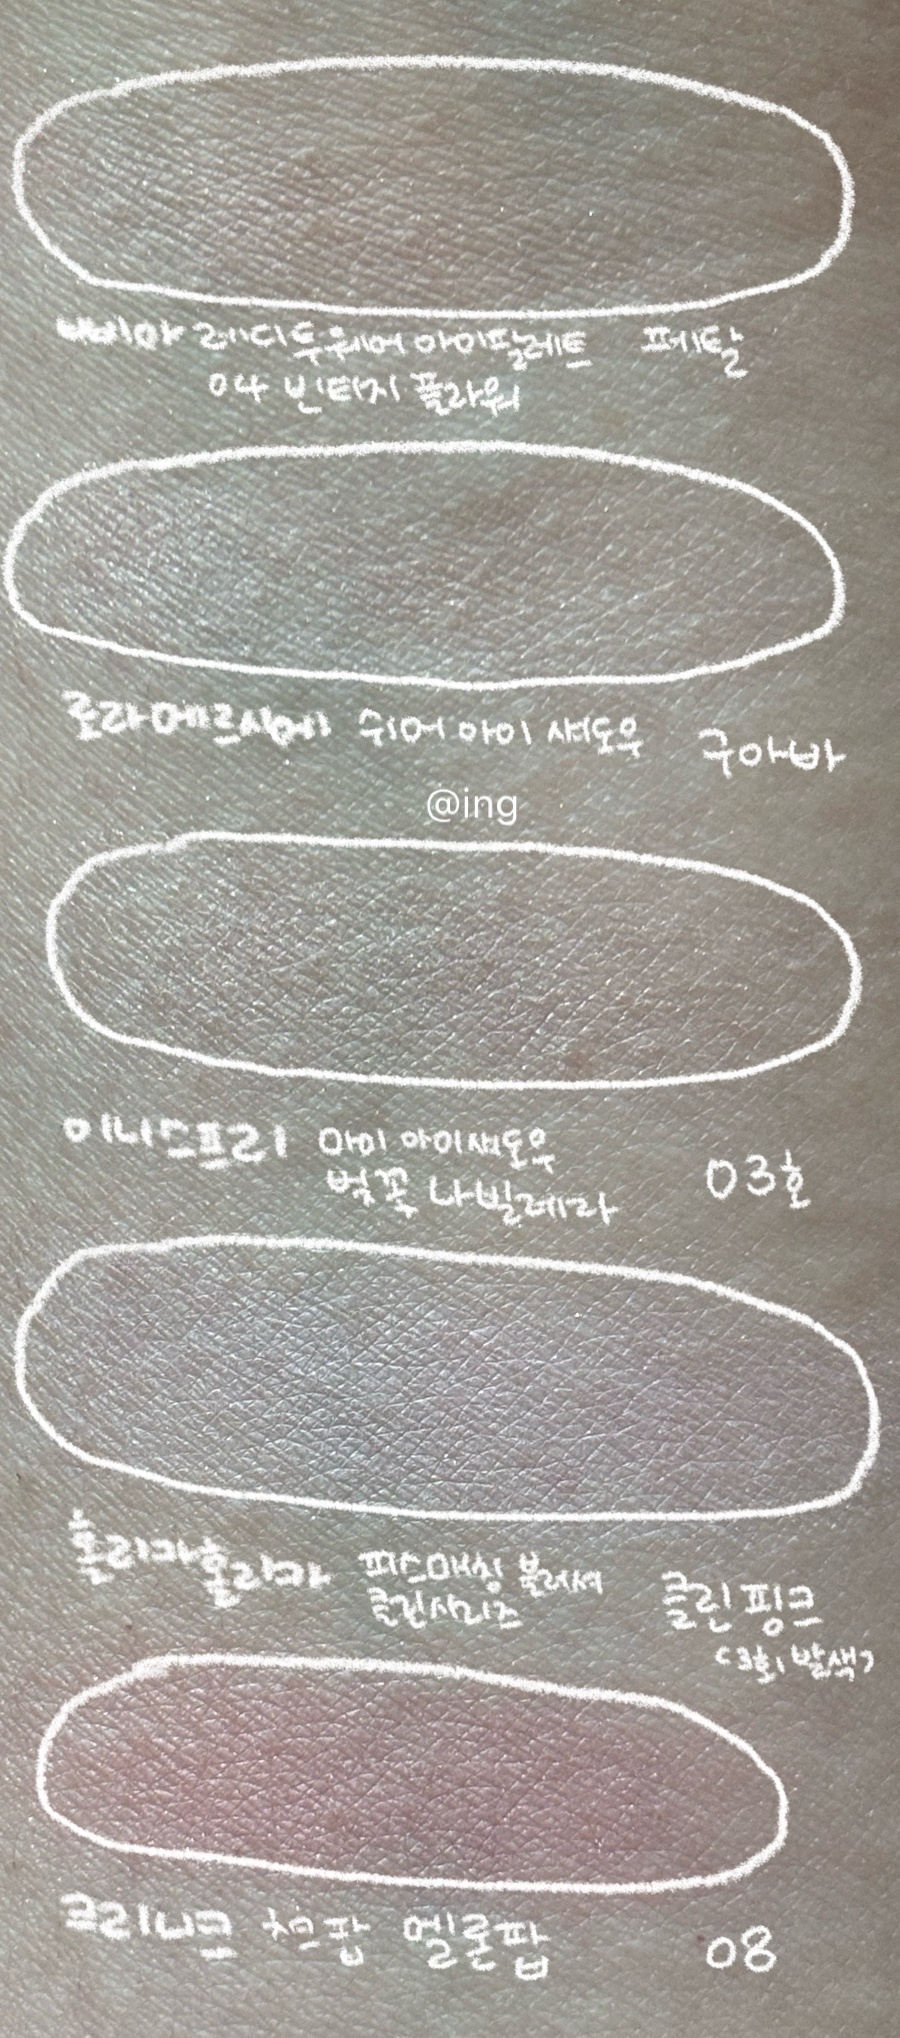 삐아 레디투웨어 아이팔레트 페탈
04 빈티지 플라워
로라메르시에 쉬어 아이 섀도우 구아바
@ing
이니스프리 마이 아이섀도우
벚꽃 나빌레라 03호
홀리카홀리카 피스매칭 블러셔
클린시리즈 클린 핑크
(3회 발색)
크리니크 치크팝 멜론팝 08